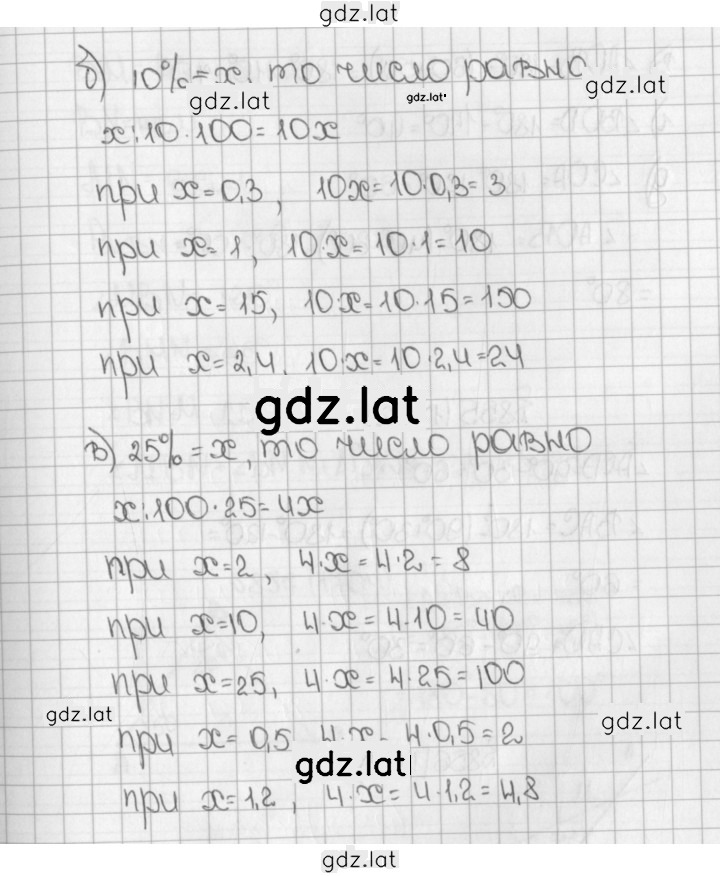 gdz.lat
б) 10% = x. то число равно
gdz.lat
gdz.lat
gdz.lat
x:10·100=10x
при x=0,3, 10x=10·0,3=3
при x=1, 10·x=10·1=10
при x=15, 10·x=10·15=150
при x=2,4. 10·x=10·2,4=24
gdz.lat
в) 25%=x, то число равно
x:100·25=4x
при x=2, 4·x=4·2=8
при x=10, 4·x=4·10=40
при x=25, 4·x=4·25=100
gdz.lat
gdz.lat
при x=0,5 4·x= 4·0,5=2
gdz.lat
при x=1,2, 4·x=4·1,2=4,8
gdz.lat